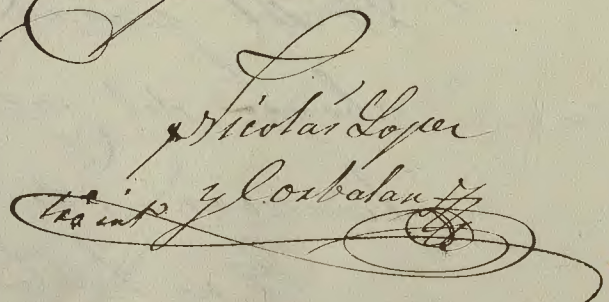 Nicolás Lopez
y Corbalan
int.º